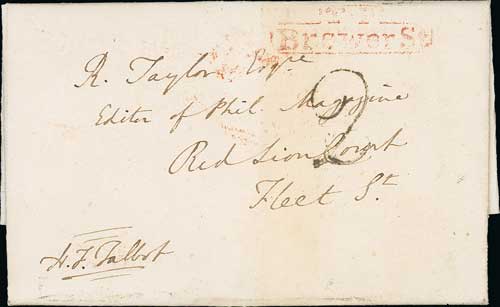 Brewer St
R. Taylor Esqre
Editor of Phil. Magazine
2
Red Lion Court
Fleet St.
H. F. Talbot